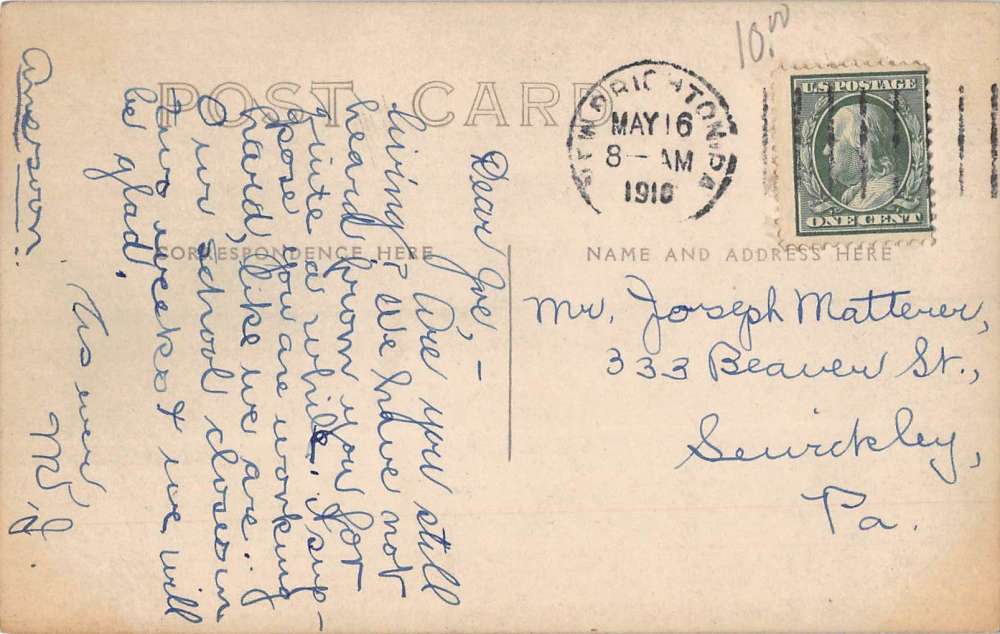 10.00
POST CARD
NEW BRIGHTON, PA
MAY 16
8 – AM
1910
U.S. POSTAGE
ONE CENT
CORRESPONDENCE HERE
NAME AND ADDRESS HERE
Dear Joe, –
Are you still
living? We have not
heard from you for
quite a while. I sup-
pose you are working
hard, like we are.
Our school closes in
two weeks & we will
be glad.
As ever,
M. J.
Answer soon.
Mr. Joseph Matterer,
333 Beaver St.,
Sewickley,
Pa.